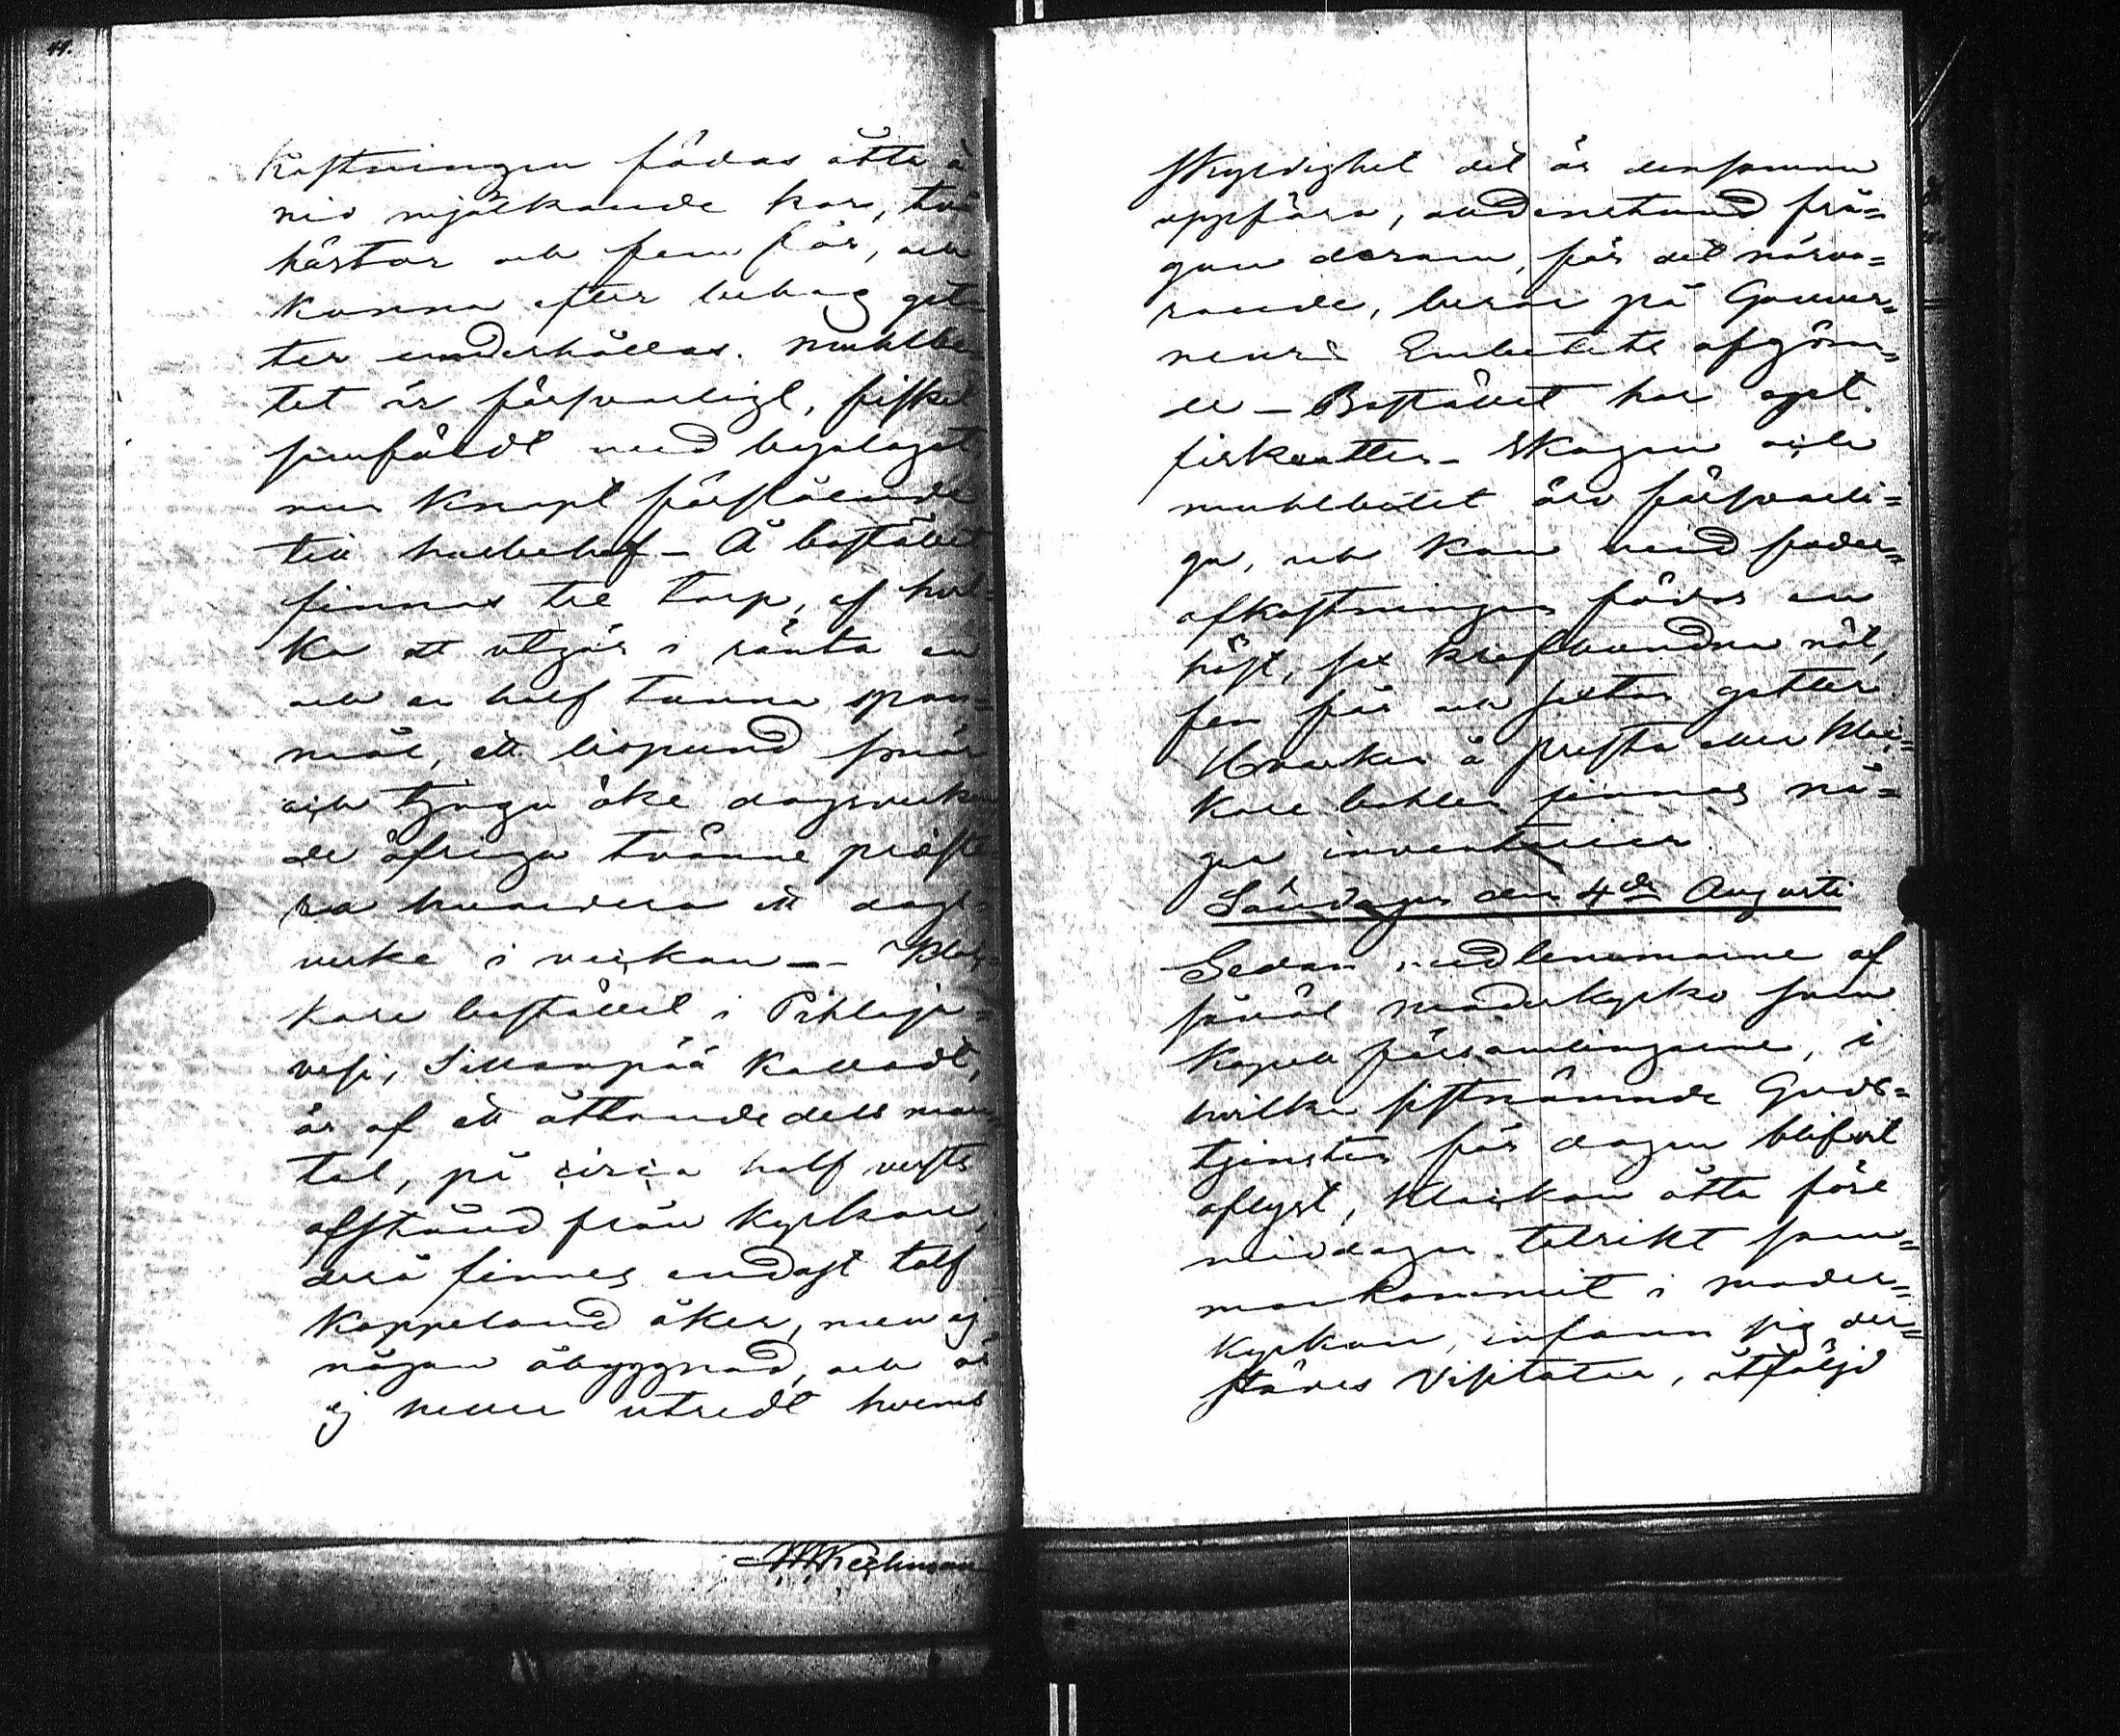 44.
kastningen födas åtta à
nio mjölkande kor, två
hästar och fem får, och
kunna efter behag get=
ter underhållas. Muhlbe=
tet är försvarligt, fisket
samfäldt med byalaget,
men knapt förslående
till husbehof – Å bostället
finnas tre torp, af hvil=
ka ett utgör i ränta en
och en half tunna span=
mål, ett lispund smör
och tjugu öke dagsverken
de öfriga tvänne præste=
ra hvardera ett dags=
verke i veckan – Kloc=
kare bostället i Pihlaja=
vesi, Sillanpää kalladt,
är af ett åttondedels man=
tal, på circa half versts
afstånd från kyrkan;
derå finnes endast tolf
kappeland åker, men ej
någon åbyggnad, och är
ej heller utredt hvems
skyldighet det är densamma
uppföra, alldenstund frå=
gan derom, för det närva=
rande, beror på Gouver=
neurs Embetets afgöran=
de – Bostället har eget
fiskvatten – Skogen och
muhlbetet äro försvarli=
ga, och kan med foder=
afkastningen födas en
häst, sex krafbundna nöt,
fem får och sexton getter.
Hvarken å presta eller kloc=
kare bohlen finnas nå=
gra inventarier.
Söndagen den 4de Augusti
Sedan medlemmarne af
såväl moderkyrko som
kapell församlingarne, i
hvilka sistnämnde Guds=
tjensten för dagen blifvit
aflyst, klockan åtta före
middagen talrikt sam=
mankommit i moder=
kyrkan, infann sig der=
städes Visitator, åtföljd